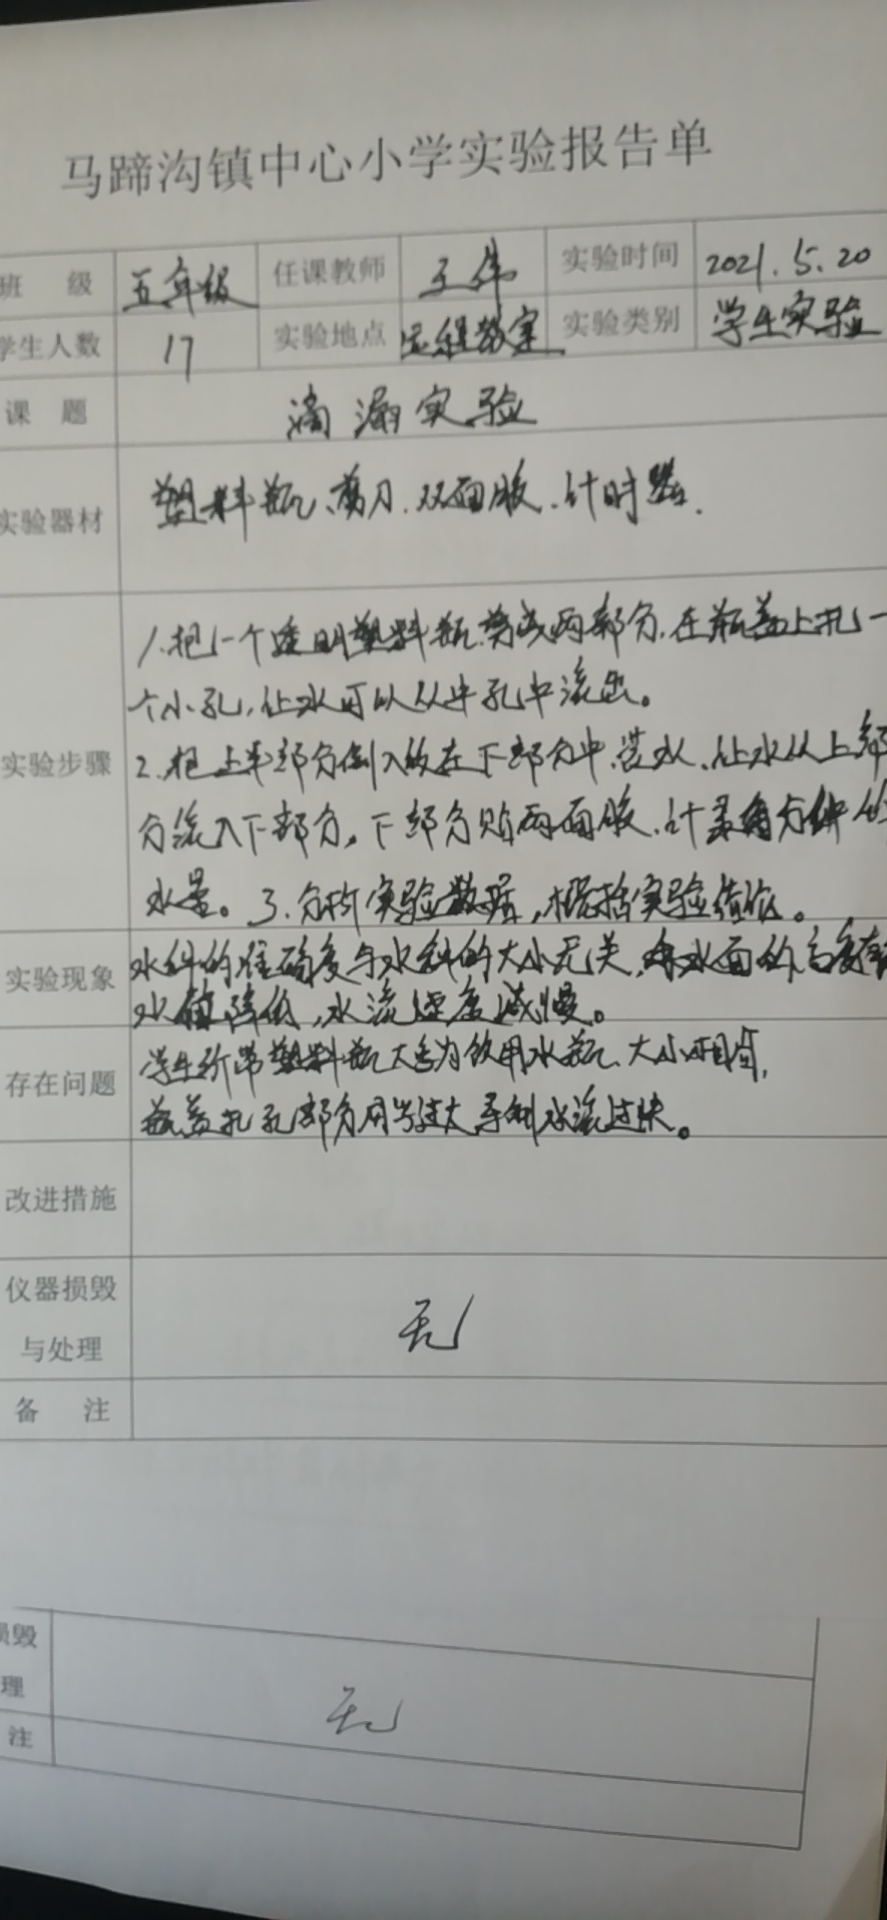 马蹄沟镇中心小学实验报告单
班 级 五年级 任课教师 王伟 实验时间 2021.5.20
学生人数 17 实验地点 远程教室 实验类别 学生实验
课 题 滴漏实验
实验器材 塑料瓶、剪刀、双面胶、计时器.
1.把一个透明塑料瓶剪成两部分,在瓶盖上扎一
个小孔,让水可以从中孔中流出。
实验步骤 2.把上半部分倒入放在下部分中,装水,让水从上部
分流入下部分。下部分贴两面胶,计录每分钟的
水量。3.分析实验数据,概括实验结论。
实验现象 水钟的准确度与水钟的大小无关,由水面的高度
水位降低,水流速度减慢。
存在问题 学生所带塑料瓶大多为饮用水瓶、大小相同,
瓶盖扎孔部分同学过大导制水流过快。
改进措施
仪器损毁
与处理 无
备 注
损毁
理 无
注